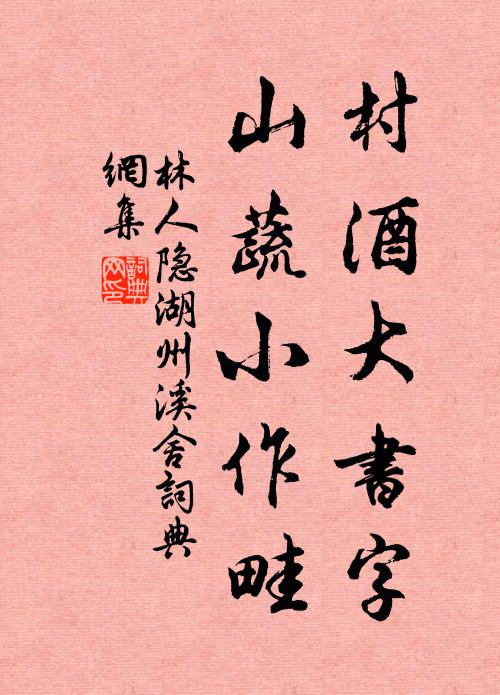 村酒大書字
山蔬小作畦
林人隐湖州溪舍詞典
網集
詞典
网印